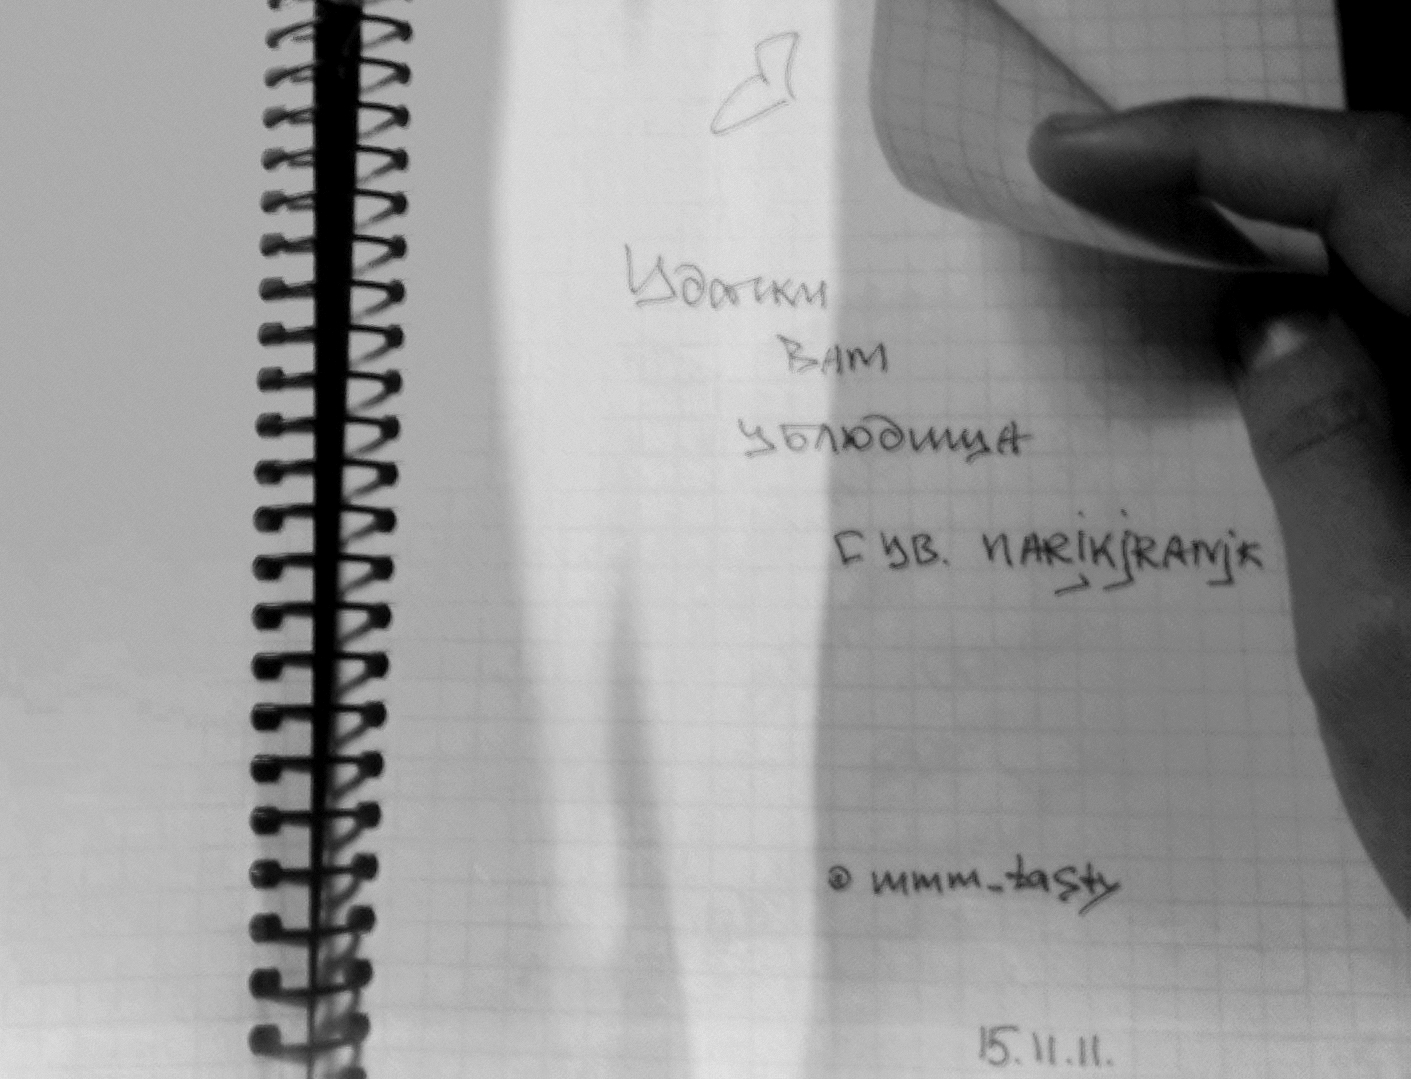 Удачки
вам
ублюдища
С ув. NARjKjRANjK
@mmm_tasty
15.11.11.